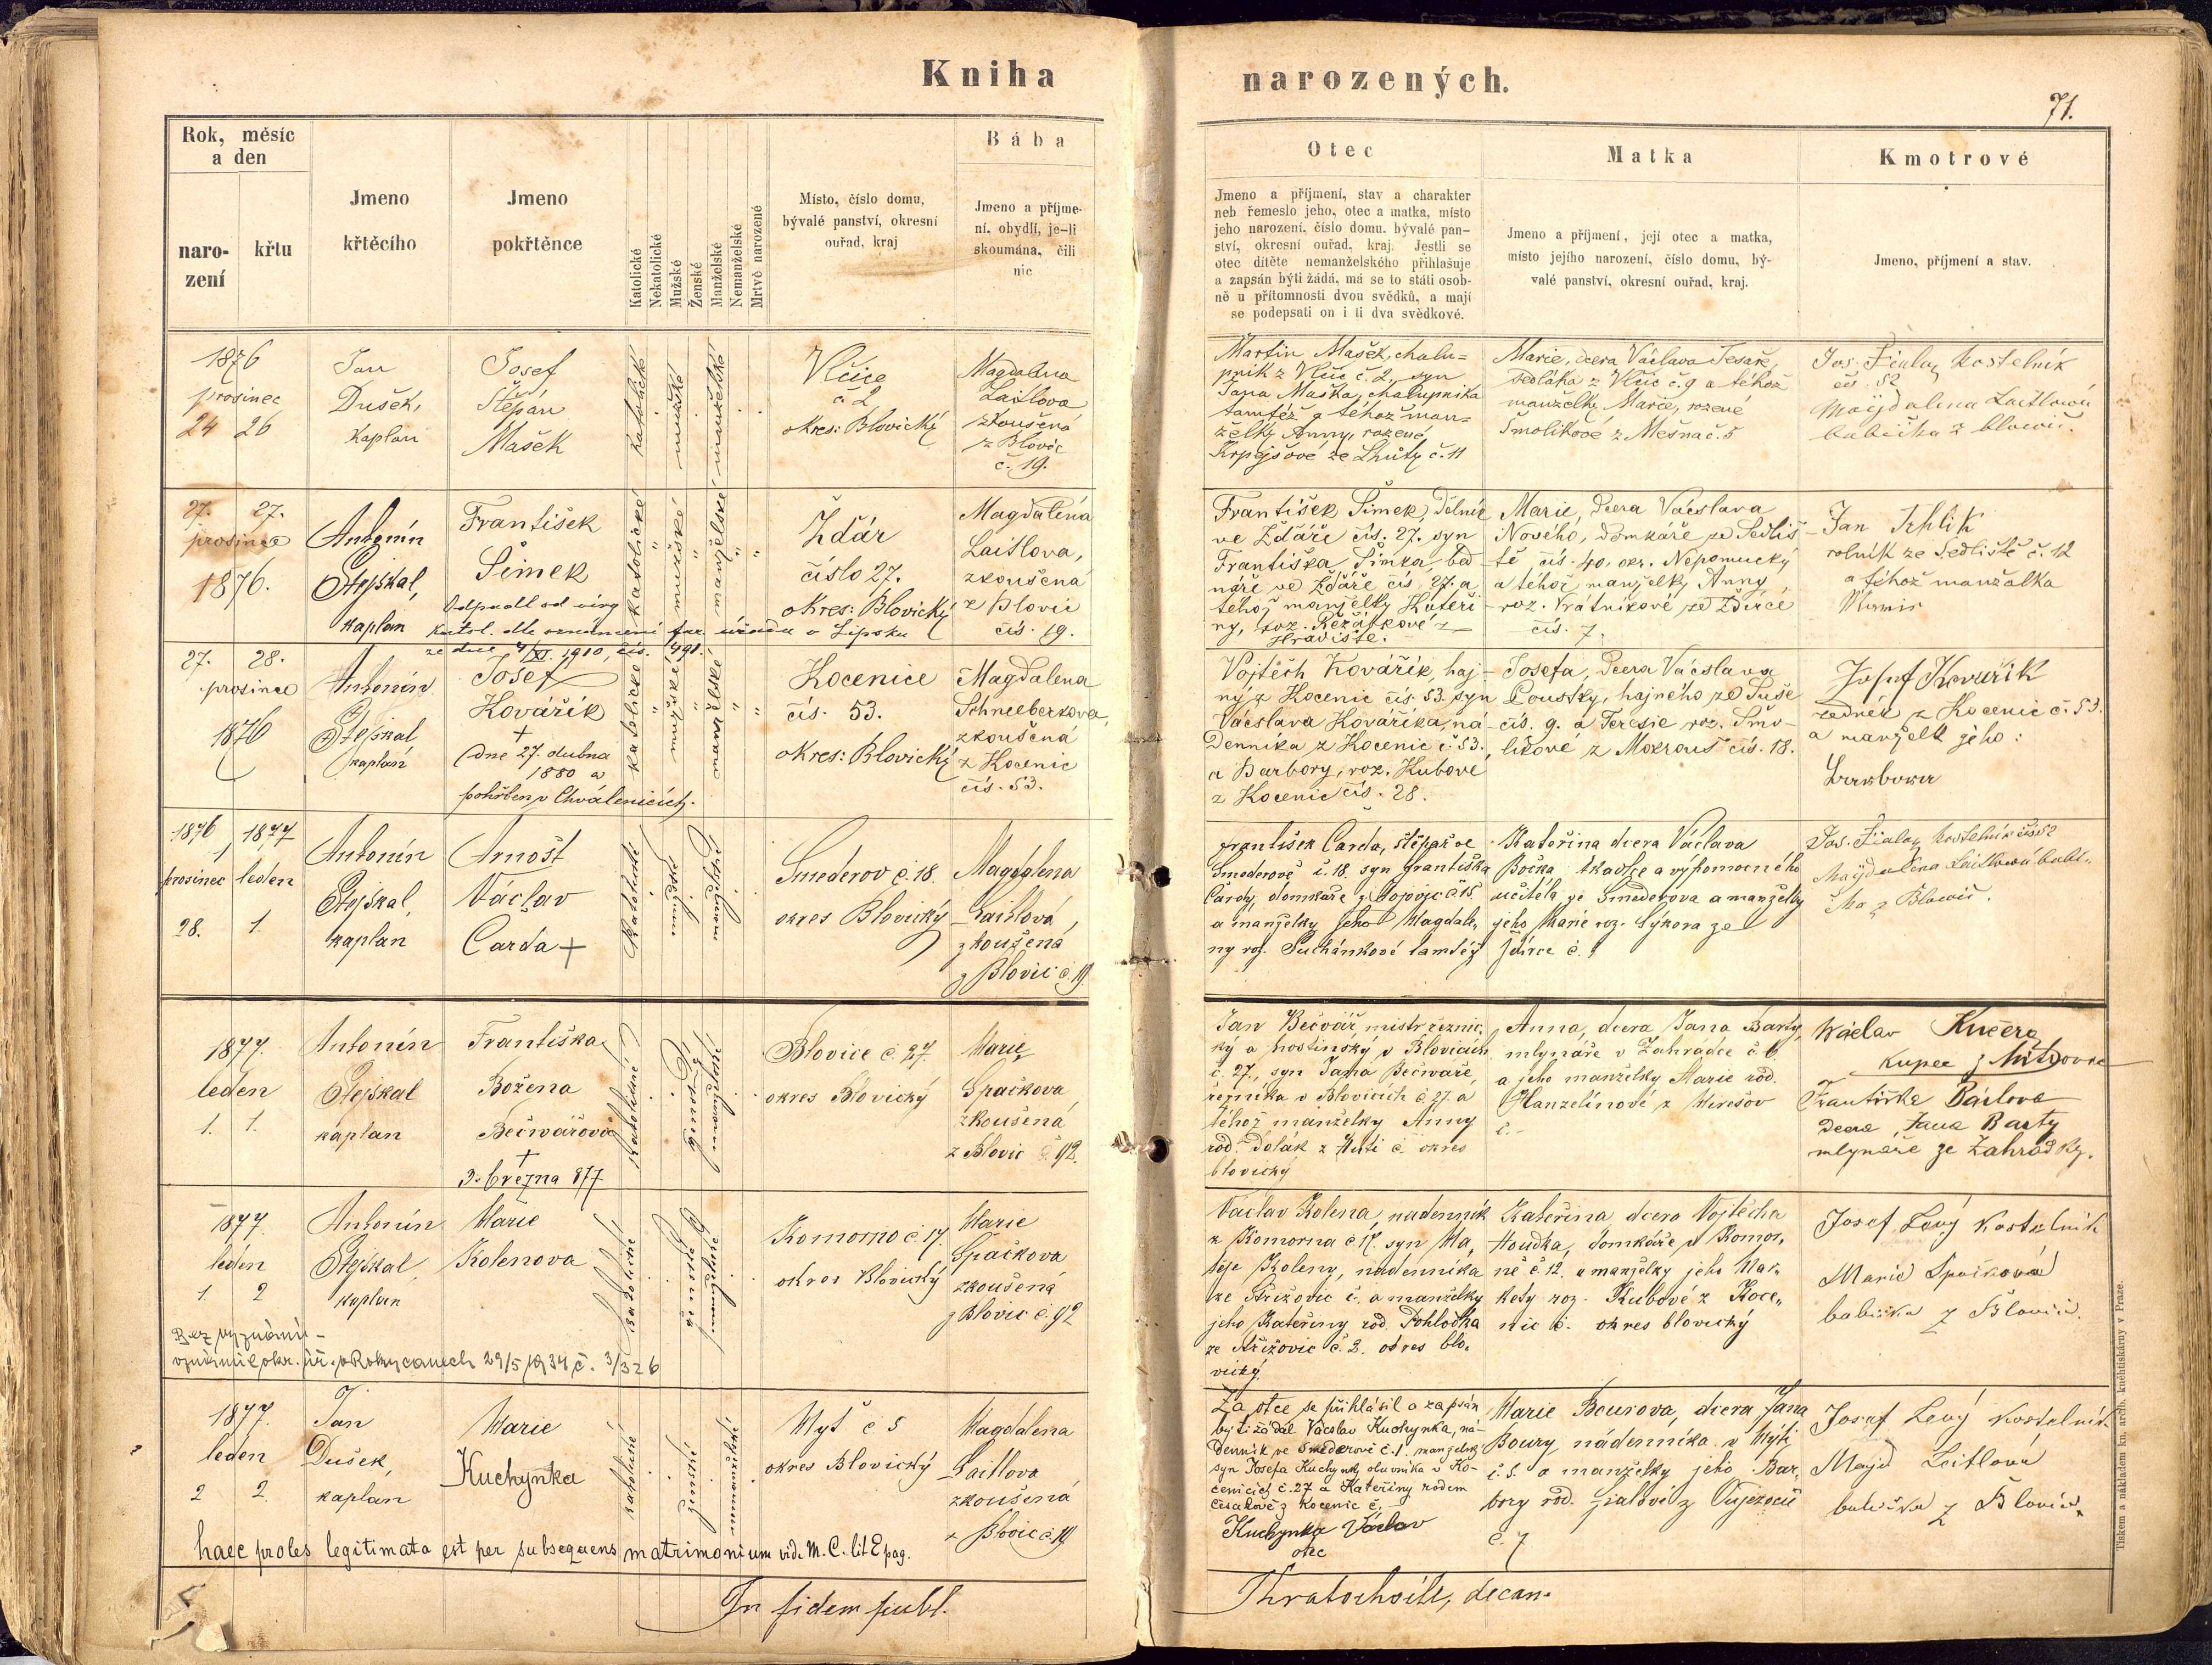 Kniha narozených.
71.
Rok, měsíc
a den
naro-
zení
křtu
Jmeno
křtěcího
Jmeno
pokřtěnce
Katolické
Nekatolické
Mužské
Ženské
Manželské
Nemanželské
Mrtvě narozené
Místo, číslo domu,
bývalé panství, okresní
ouřad, kraj
Bába
Jmeno a příjme-
ní, obydlí, je-li
skoumána, čili
nic
Otec
Jmeno a příjmení, stav a charakter
neb řemeslo jeho, otec a matka, místo
jeho narození, číslo domu, bývalé pan-
ství, okresní ouřad, kraj. Jestli se
otec dítěte nemanželského přihlašuje
a zapsán býti žádá, má se to státi osob-
ně u přítomnosti dvou svědků, a mají
se podepsati on i ti dva svědkové.
Matka
Jmeno a příjmení, její otec a matka,
místo jejího narození, číslo domu, bý-
valé panství, okresní ouřad, kraj.
Kmotrové
Jmeno, příjmení a stav.
1876
prosinec
24 26
Jan
Dušek,
kaplan
Josef
Štěpán
Mašek
katolické
mužské
manželské
Vlčice
č. 2
okres: Blovický
Magdalena
Laitlova
zkoušená
z Blovic
č. 19.
Martin Mašek, chalu=
pník z Vlčic č. 2, syn
Jana Maška, chalupníka
tamtéž a téhož man=
želky Anny, rozené
ze Lhůty č. 11
Marie, dcera Václava Tesaře,
sedláka z Vlčic č. 9 a téhož
manželky Marie, rozené
Šmolíkové z Měšna č. 5
Jos. Fiala, kostelník
čís. 52
Majdalena Laitlová
babička z Blovic.
27. 27.
prosince
1876.
Antonín
Stejskal,
kaplan
František
Šimek
Odpadl od víry
katol. dle oznámení far. úřadu v Lipsku
ze dne 4/XI. 1910, čís. 491.
katolické
mužské
manželské
Ždár
číslo 27.
okres: Blovický
Magdaléna
Laitlova,
zkoušená
z Blovic
čís. 19.
František Šimek, dělník
ve Ždáře čís. 27. syn
Františka Šimka, bed-
náře ve Ždáře čís. 27. a
téhož manželky Kateři-
ny, roz. Řežábkové z
Hradiště.
Marie, dcera Vácslava
Nového, domkáře ze Sedliš-
tě čís. 40. okr. Nepomucký
a téhož manželky Anny
roz. Vrátníkové ze Ždírce
čís. 7.
Jan Trhlík
rolník ze Sedliště č. 12
a téhož manžalka
27. 28.
prosince
1876
Antonín
Stejskal
kaplan
Josef
Kovářík
+
dne 27. dubna
1880 a
pohřben v Chválenicích.
katolické
mužské
manželské
Kocenice
čís. 53.
okres: Blovický
Magdalena
Schneeberkova,
zkoušená
z Kocenic
čís. 53.
Vojtěch Kovářík, haj-
ný z Kocenic čís. 53. syn
Vácslava Kováříka, ná-
denníka z Kocenic č. 53.
a Barbory, roz. Kubove
z Kocenic čís. 28.
Josefa, dcera Vácslava
Poustky, hajného ze Suše
čís. 9. a Terezie roz. Šmo-
líkové z Mokrouš čís. 18.
Josef Kovařík
z Kocenic č. 53.
a manželk jeho:
Barbora
1876 1877
prosinec leden
28. 1
Antonín
Stejskal,
kaplan
Arnošt
Václav
Čarda +
katolické
mužské
manželské
Smederov č. 18.
okres Blovický
Magdalena
Laitlová,
zkoušená
z Blovic č. 19.
František Čarda, štěpař ve
Smederově č. 18. syn Františka
Čardy, domkáře z č 15.
a manželky jeho Magdale,
ny roz. Suchánkové tamtéž
Kateřina dcera Václava
Bočka tkadlce a výpomocného
učitele ze Smederova a manželky
jeho Marie roz. Sýkora ze
Ždírce č.
Jos. Fiala, kostelník čís 52
Majdalena Laitlová babi-
čka z Blovic.
1877.
leden
1. 1.
Antonín
Stejskal
kaplan
Františka
Božena
Bečvářová
+
3. března 877
katolické
ženské
manželské
Blovice č. 27.
okres Blovický
Marie
Špačkova
zkoušená
z Blovic č. 92.
Jan Bečvář mistr řeznic,
ký a hostinský v Blovicích
č. 27., syn Jana Bečváře,
řezníka v Blovicích č. 27. a
téhož manželky Anny
rod. Dolák z Huti č. okres
blovický
Anna, dcera Jana Barty,
mlynáře v Zahrádce č. 6.
a jeho manželky Marie rod.
Hanzelínové z Mirešov
č. -
Wáclav Kučera
kupec z Mitrovic
Františka Bártova
dcera Jana Barty
mlynáře ze Zahrádky.
1877.
leden
1. 2
Antonín
Stejskal,
kaplan
Marie
Kolenova
Bez vyznání -
oznámil okr. úř. v Rokycanech 29/5 1934 č. 3/326
katolické
ženské
manželské
Komorno č. 17.
okres Blovický
Marie
Špačkova
zkoušená
z Blovic č. 92
Václav Kolena, nádenník
z Komorna č. 17. syn Ma,
těje Koleny, nádenníka
ze Střížovic č. a manželky
jeho Kateřiny rod. Pohlodka
ze Střížovic č. 2. okres blo,
vický.
Kateřina, dcera Vojtěcha
Houdka, domkáře v Komor,
ně č. 12. a manželky jeho Mar,
kety roz. Kubové z Koce,
nic č. okres blovický
Josef Levý kostelník
Marie Špačková
babička z Blovic.
1877.
leden
2 2.
Jan
Dušek,
kaplan
Marie
Kuchynka
katolické
ženské
nemanželské
Myť č 5
okres Blovický
Magdalena
Laitlova
zkoušená
z Blovic č. 19
Za otce se přihlásil a zapsán
býti žádal Václav Kuchynka, ná-
denník ve Smederově č. 1. manželský
syn Josefa Kuchynky, v Ko-
cenicích č. 27 a Kateřiny rodem
z Kocenic č. -
Kuchynka Václav
otec
Marie Bourova, dcera Jana
Boury, nádenníka v Mýti
č. 5. a manželky jeho Bar,
bory rod. Fialové z Oujezdců
č. 7
Josef Levý kostelník
Majd Leitlová
babička z Blovic.
haec proles legitimata est per subsequens matrimonium vide M. C. lit E pag.
In fidem publ.
decan.
Tiskem a nákladem kn. arcib. knihtiskárny v Praze.